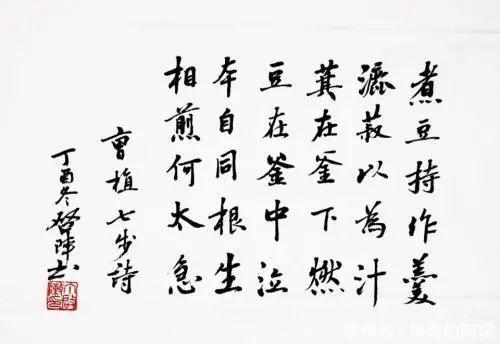 煮豆持作羹
漉菽以為汁
萁在釜下燃
豆在釜中泣
本自同根生
相煎何太急
曹植七步詩
丁酉冬 书
快传号/神奇的阿瑶